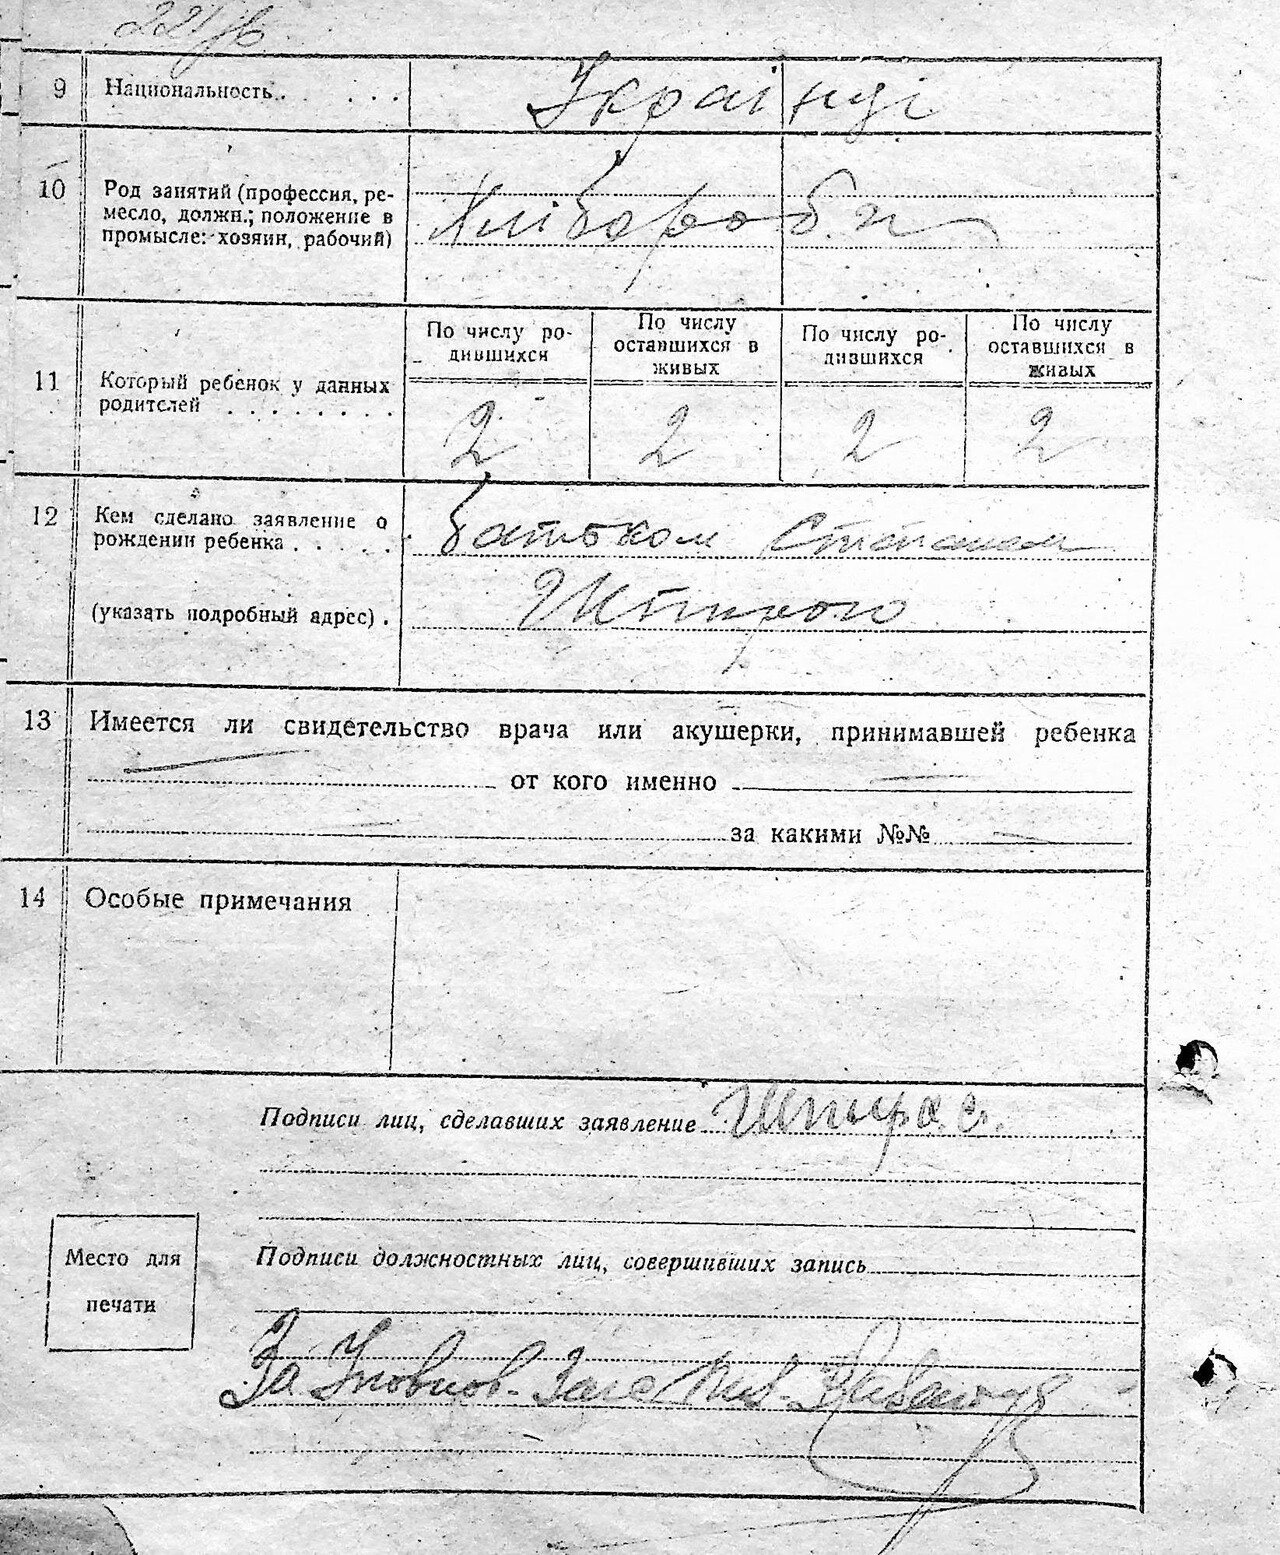 221
9 Национальность . . . . . Українці
10 Род занятий (профессия, ре-
месло, должн.; положение в
промысле: хозяин, рабочий)
Хлібороби
По числу ро-
дившихся
По числу
оставшихся в
живых
По числу ро-
дившихся
По числу
оставшихся в
живых
11 Который ребенок у данных
родителей . . . . . . . .
2 2 2 2
12 Кем сделано заявление о
рождении ребенка . . . . .
батьком Степаном
(указать подробный адрес) .
Шпирою
13 Имеется ли свидетельство врача или акушерки, принимавшей ребенка
от кого именно
за какими №№
14 Особые примечания
Подписи лиц, сделавших заявление Шпира С.
Место для
печати
Подписи должностных лиц, совершивших запись
За